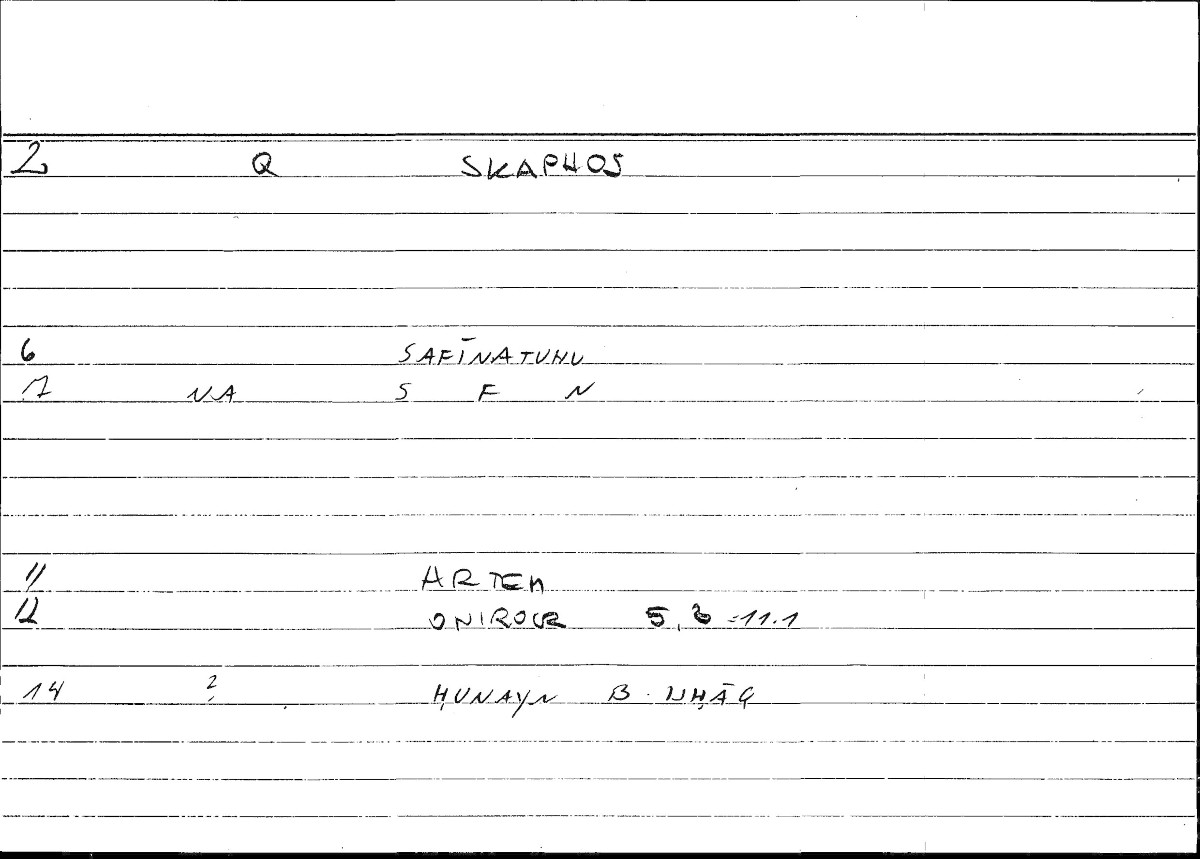 2 Q SKAPHOS
6 SAFĪNATUHU
7 NA S F N
11 ARTEM
12 ONIROCR 5,8-11.1
14 ? ḤUNAYN B. ISḤĀQ